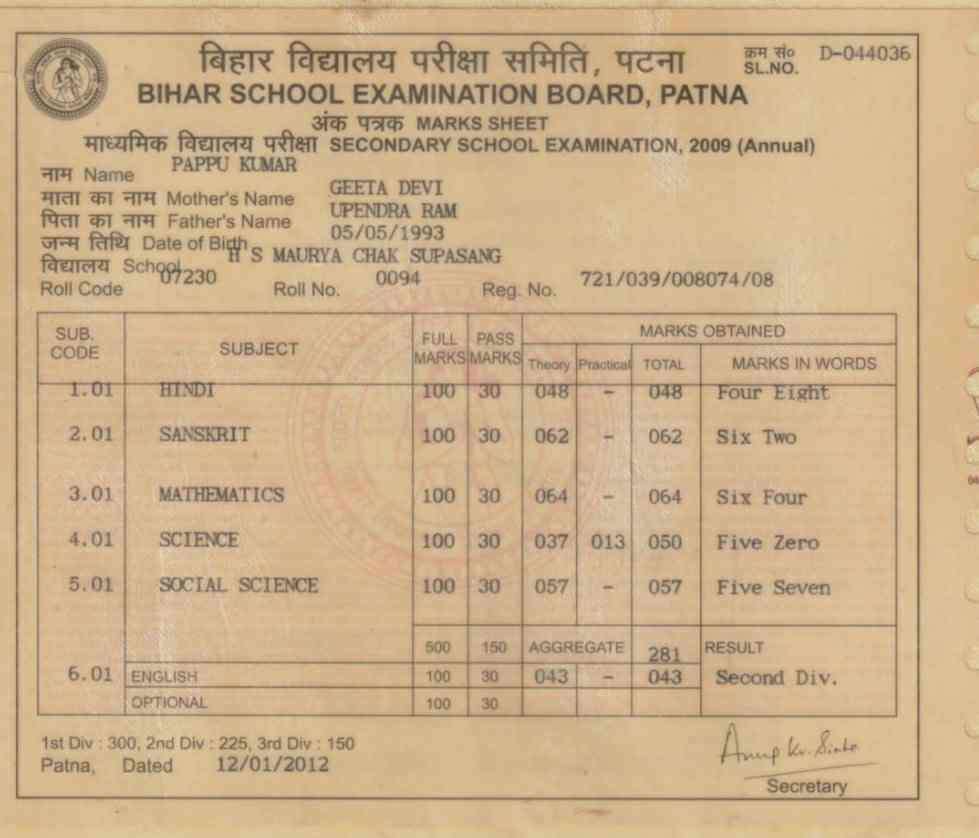 बिहार विद्यालय परीक्षा समिति, पटना
क्रम सं० D-044036
SL.NO.
BIHAR SCHOOL EXAMINATION BOARD, PATNA
अंक पत्रक MARKS SHEET
माध्यमिक विद्यालय परीक्षा SECONDARY SCHOOL EXAMINATION, 2009 (Annual)
नाम Name PAPPU KUMAR
माता का नाम Mother's Name GEETA DEVI
पिता का नाम Father's Name UPENDRA RAM
जन्म तिथि Date of Birth 05/05/1993
विद्यालय School H S MAURYA CHAK SUPASANG
Roll Code 07230 Roll No. 0094 Reg. No. 721/039/008074/08
SUB. CODE SUBJECT FULL MARKS PASS MARKS MARKS OBTAINED
Theory Practical TOTAL MARKS IN WORDS
1.01 HINDI 100 30 048 - 048 Four Eight
2.01 SANSKRIT 100 30 062 - 062 Six Two
3.01 MATHEMATICS 100 30 064 - 064 Six Four
4.01 SCIENCE 100 30 037 013 050 Five Zero
5.01 SOCIAL SCIENCE 100 30 057 - 057 Five Seven
500 150 AGGREGATE 281 RESULT
6.01 ENGLISH 100 30 043 - 043 Second Div.
OPTIONAL 100 30
1st Div : 300, 2nd Div : 225, 3rd Div : 150
Patna, Dated 12/01/2012
Anup Kr. Sinha
Secretary